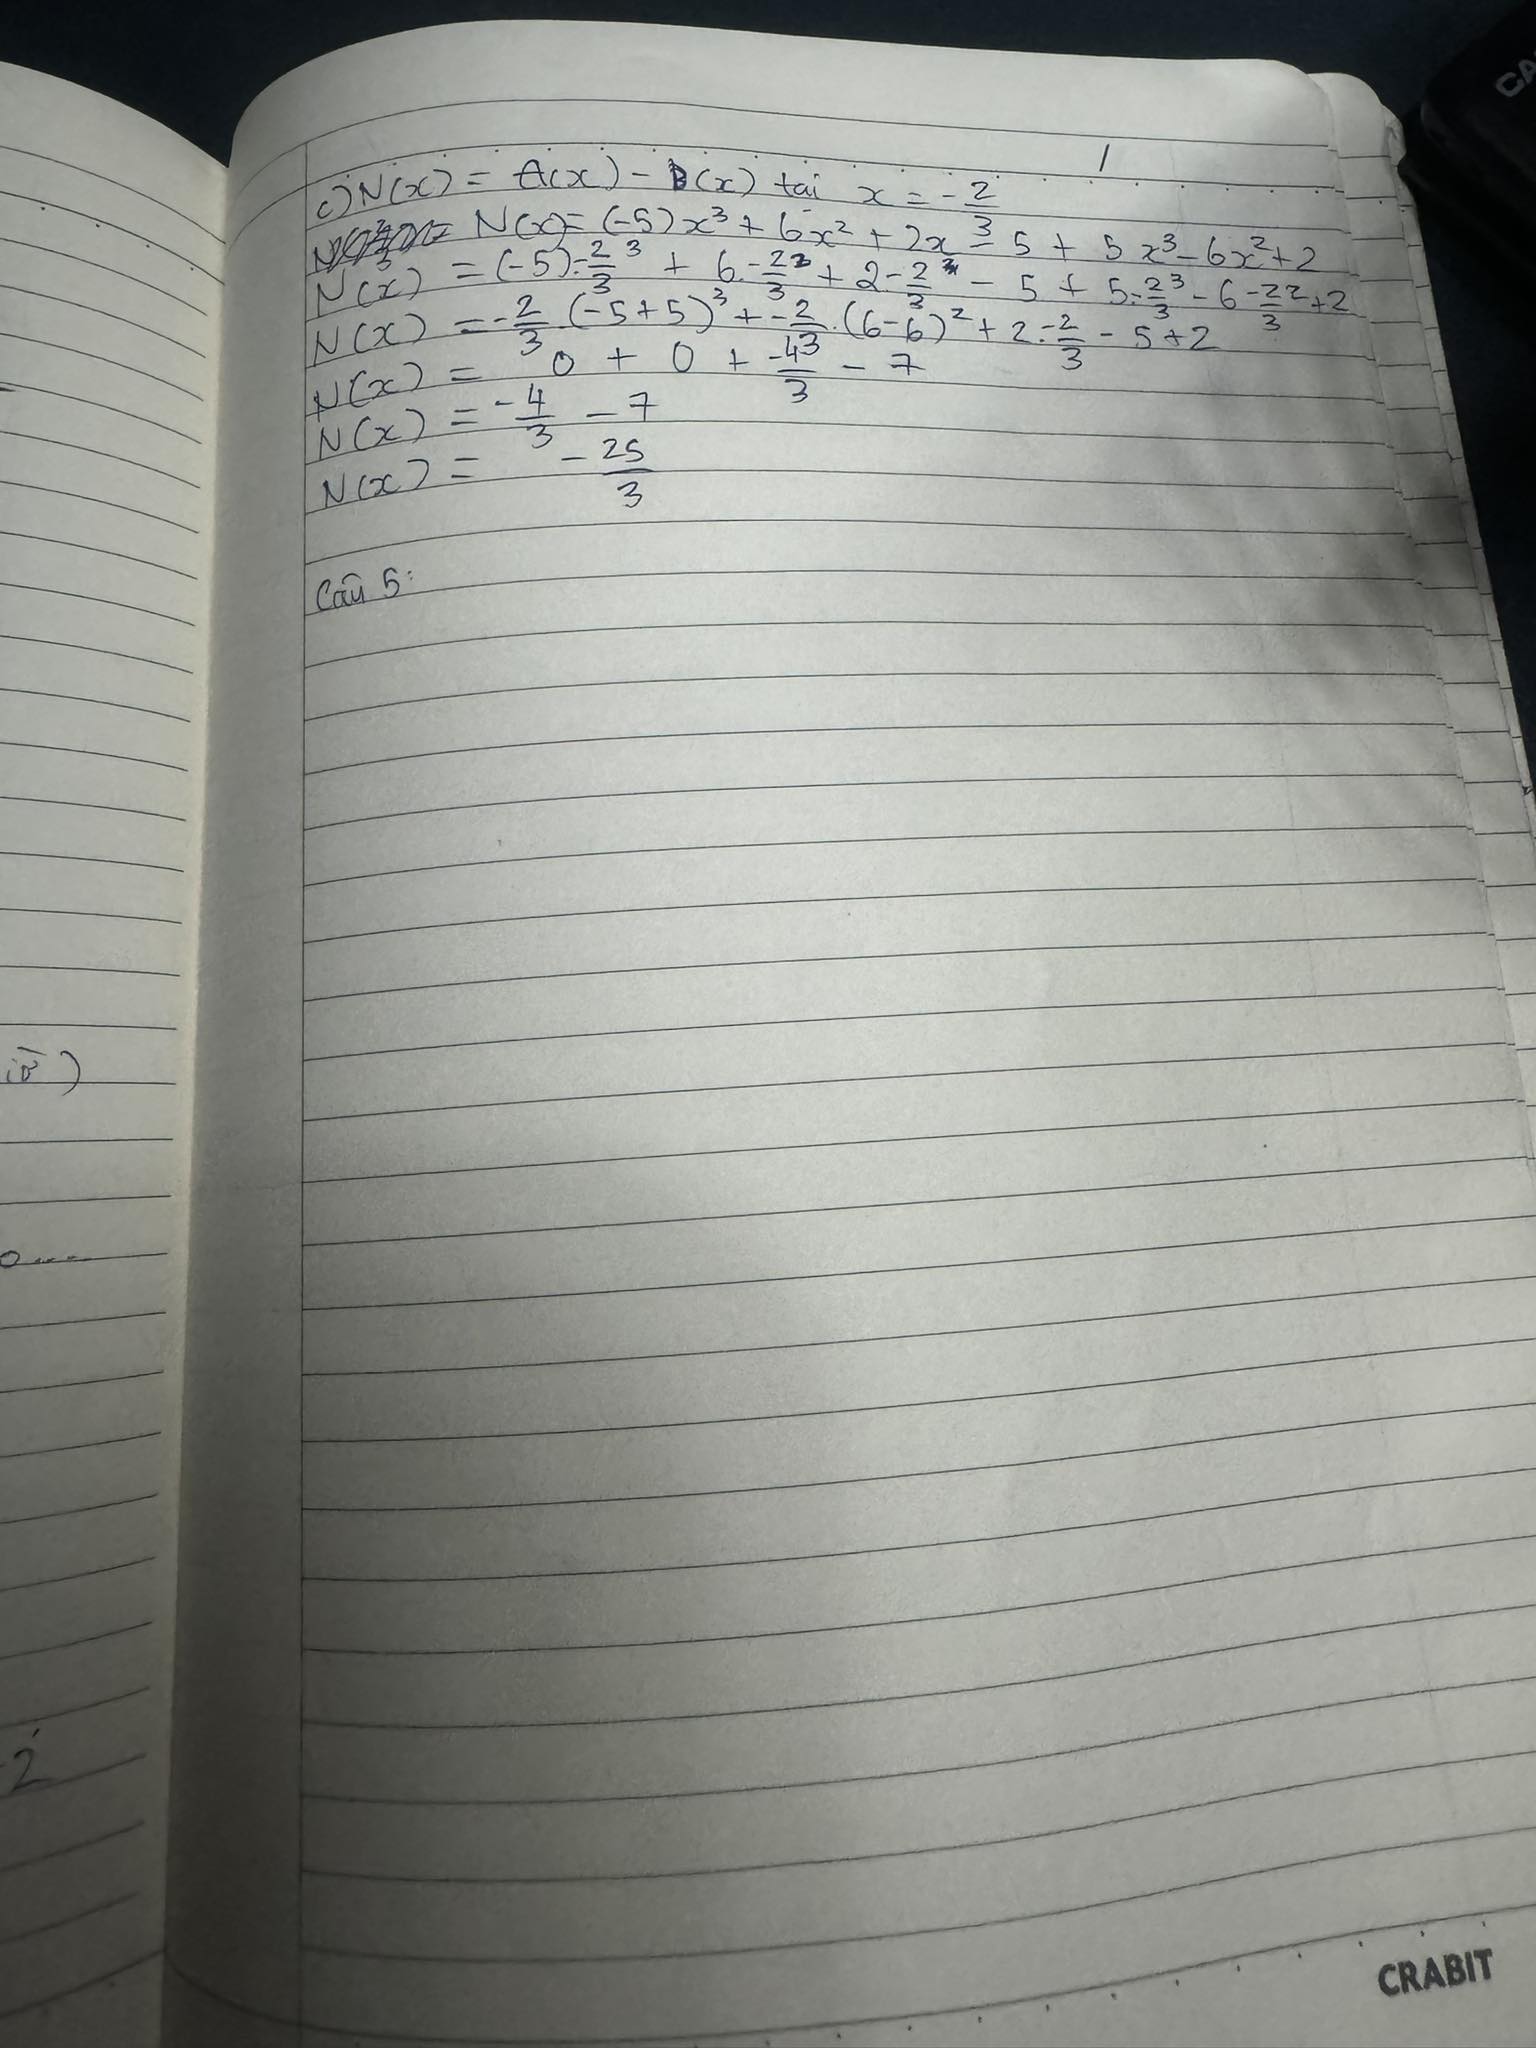 c) N(x) = A(x) - B(x) tại x = -2/3
N(x) = (-5)x³ + 6x² + 2x - 5 + 5x³ - 6x² + 2
N(x) = (-5).-2/3³ + 6.-2/3² + 2-2/3 - 5 + 5.-2/3³ - 6-2/3² + 2
N(x) = -2/3.(-5+5)³ + -2/3.(6-6)² + 2.-2/3 - 5 + 2
N(x) = 0 + 0 + -4/3 - 7
N(x) = -4/3 - 7
N(x) = -25/3
Câu 5:
CRABIT